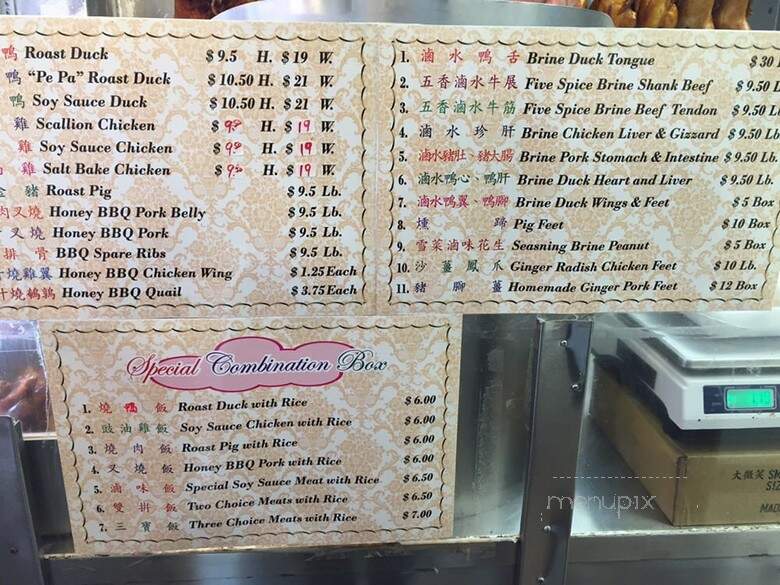 鴨 Roast Duck $9.5 H. $19 W.
鴨 "Pe Pa" Roast Duck $10.50 H. $21 W.
鴨 Soy Sauce Duck $10.50 H. $21 W.
雞 Scallion Chicken H. $19 W.
雞 Soy Sauce Chicken H. $19 W.
雞 Salt Bake Chicken H. $19 W.
金 豬 Roast Pig $9.5 Lb.
肉叉燒 Honey BBQ Pork Belly $9.5 Lb.
叉燒 Honey BBQ Pork $9.5 Lb.
排骨 BBQ Spare Ribs $9.5 Lb.
汁燒雞翼 Honey BBQ Chicken Wing $1.25 Each
汁燒鵪鶉 Honey BBQ Quail $3.75 Each
1. 滷水鴨舌 Brine Duck Tongue $30
2. 五香滷水牛展 Five Spice Brine Shank Beef $9.50 L
3. 五香滷水牛筋 Five Spice Brine Beef Tendon $9.50 L
4. 滷水珍肝 Brine Chicken Liver & Gizzard $9.50 Lb
5. 滷水豬肚、豬大腸 Brine Pork Stomach & Intestine $9.50 Lb.
6. 滷水鴨心、鴨肝 Brine Duck Heart and Liver $9.50 Lb.
7. 滷水鴨翼、鴨腳 Brine Duck Wings & Feet $5 Box
8. 燻蹄 Pig Feet $10 Box
9. 雪菜滷味花生 Seasning Brine Peanut $5 Box
10. 沙薑鳳爪 Ginger Radish Chicken Feet $10 Lb.
11. 豬腳薑 Homemade Ginger Pork Feet $12 Box
Special Combination Box
1. 燒鴨飯 Roast Duck with Rice $6.00
2. 豉油雞飯 Soy Sauce Chicken with Rice $6.00
3. 燒肉飯 Roast Pig with Rice $6.00
4. 叉燒飯 Honey BBQ Pork with Rice $6.00
5. 滷味飯 Special Soy Sauce Meat with Rice $6.50
6. 雙拼飯 Two Choice Meats with Rice $6.50
7. 三寶飯 Three Choice Meats with Rice $7.00
大微笑 SM
SIZ
MADE
menupix